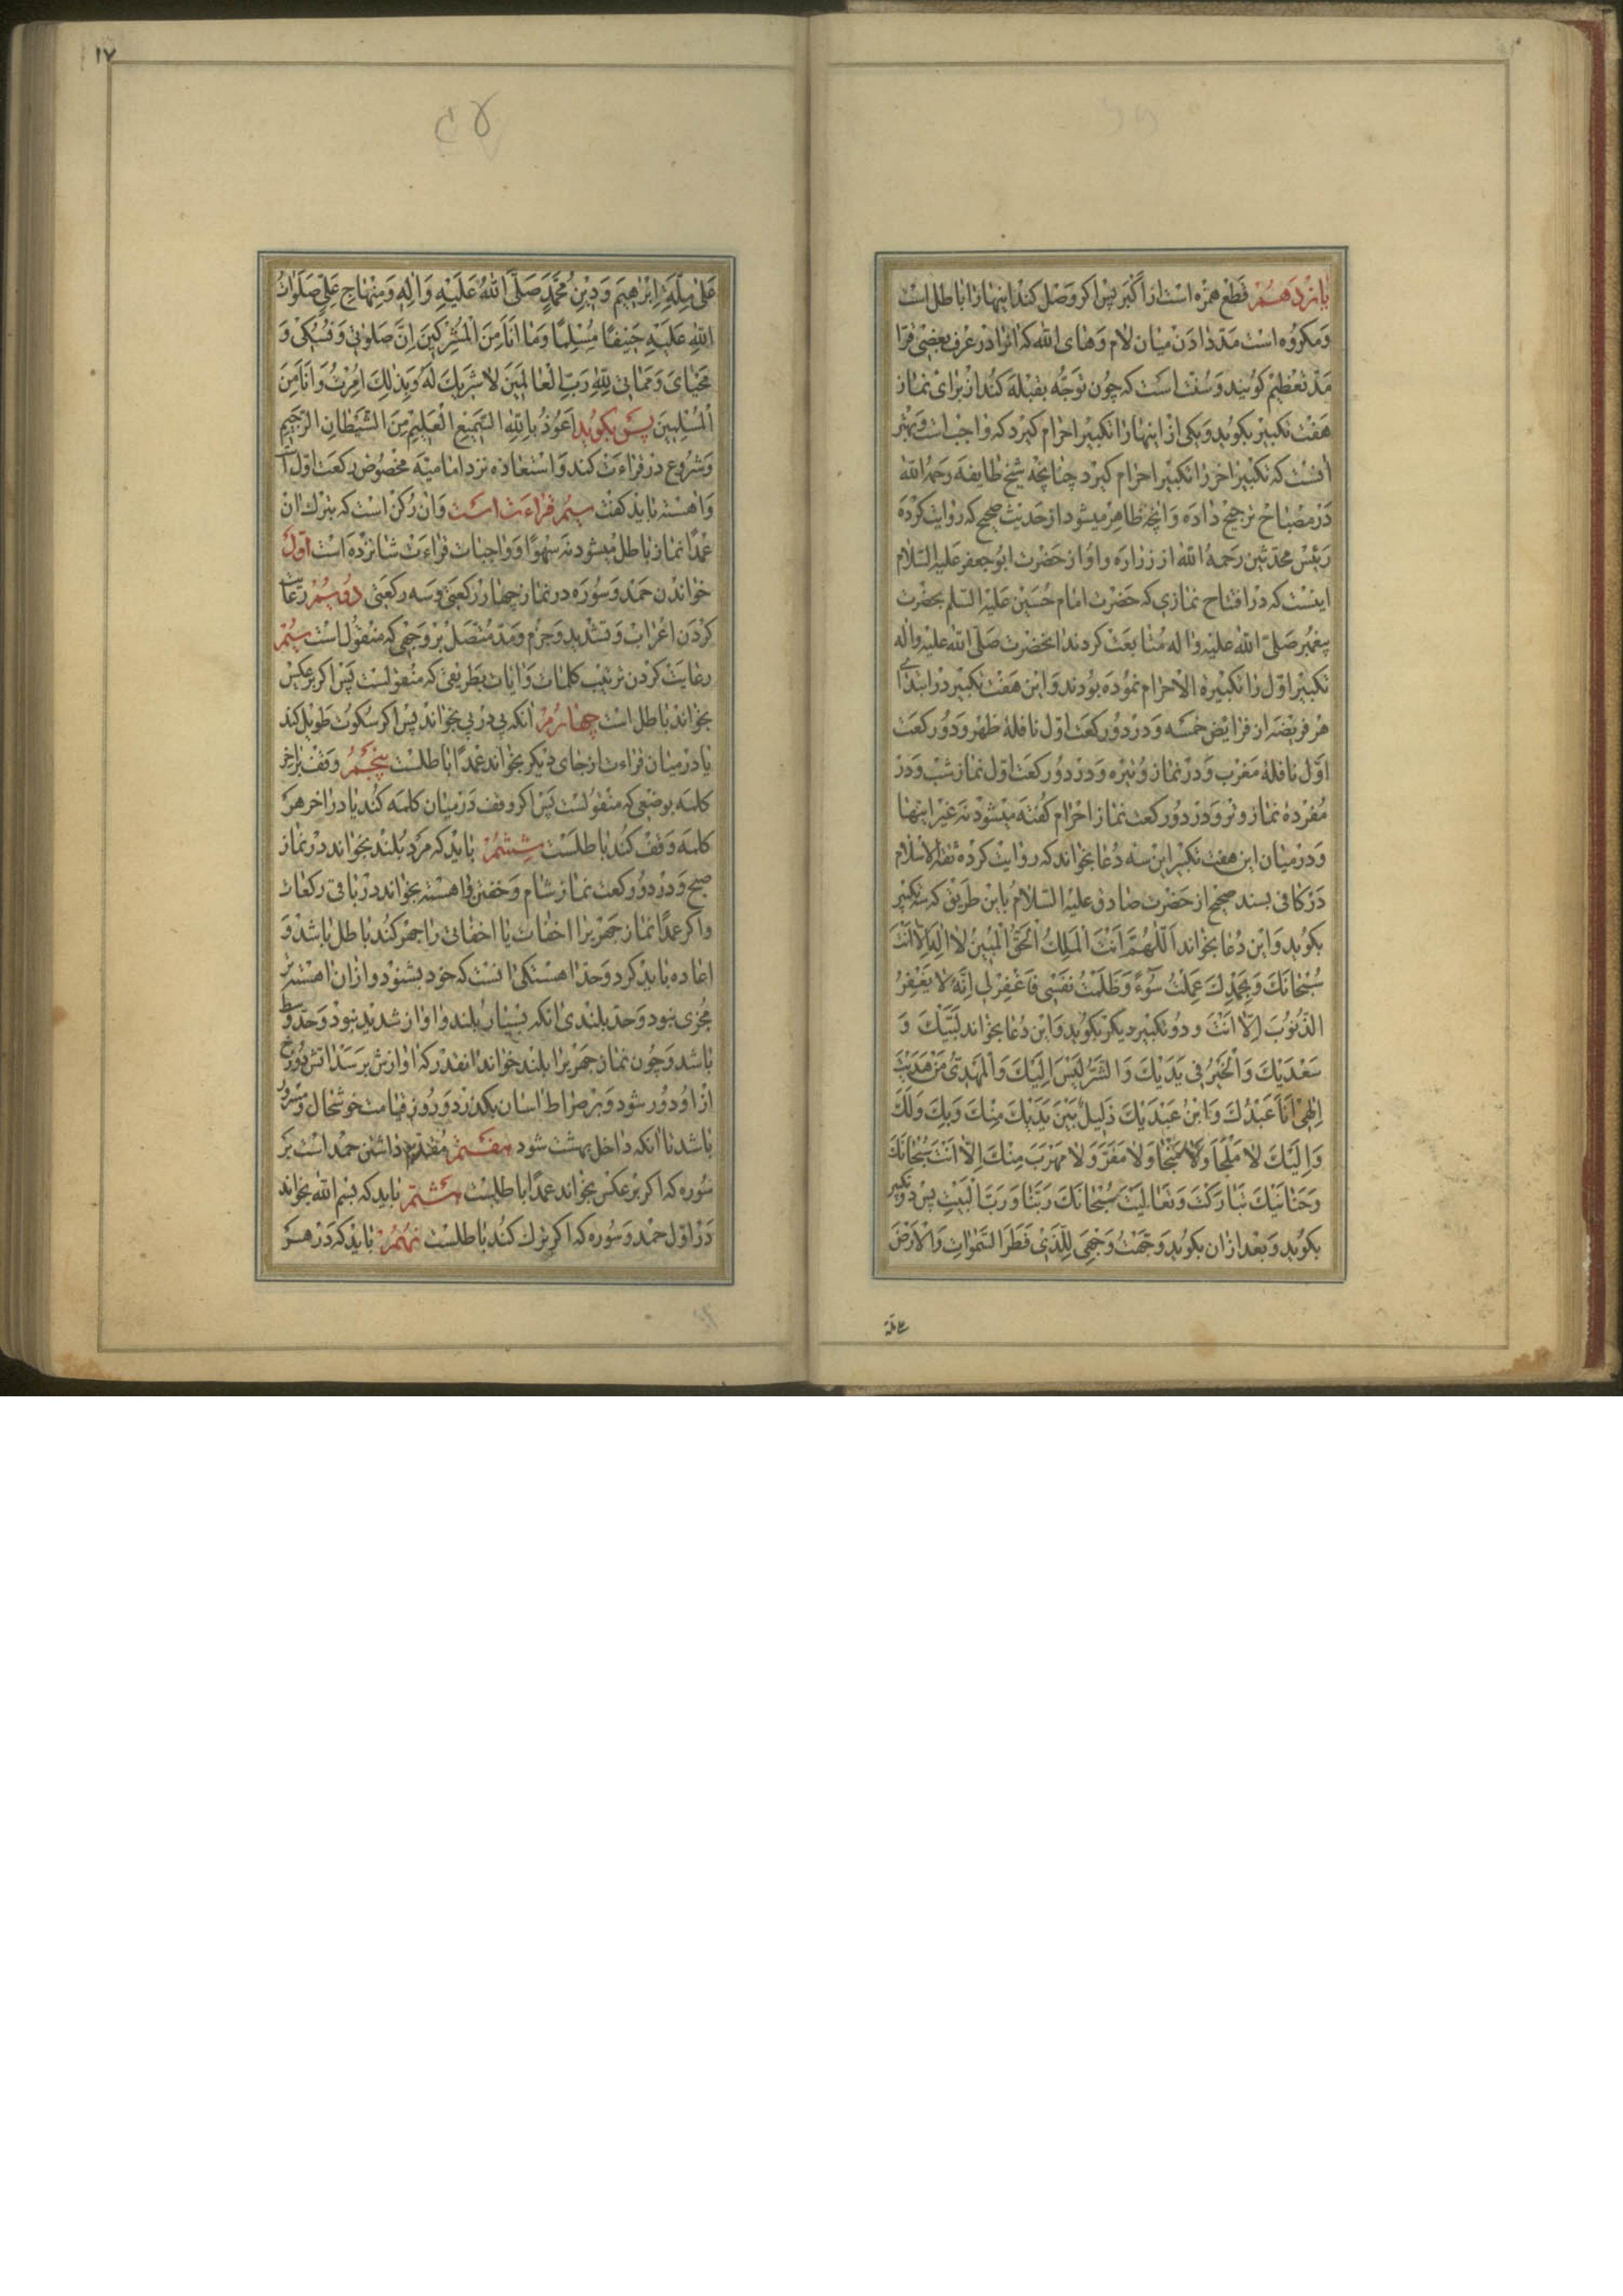 یازدهم قطع همزه است از اکبر پس اکر وصل کند اینها را باطل است
و مکروه است مد دادن میان لام و های الله که انرا در عرف بعضی قرا
مد تعظیم کویند و سنت است که چون توجه بقبله کند از برای نماز
هفت تکبیر بکوید و یکی از اینها را تکبیر احرام کیرد که واجب است و بهتر
انست که تکبیر اخر را تکبیر احرام کیرد چنانچه شیخ طایفه رحمه الله
در مصباح ترجیح داده و انچه ظاهر میشود از حدیث صحیح که روایت کرده
رئیس محدثین رحمه الله از زراره و او از حضرت ابو جعفر علیه السلام
اینست که در افتتاح نمازی که حضرت امام حسین علیه السلم بحضرت
پیغمبر صلی الله علیه واله متابعت کردند انحضرت صلی الله علیه واله
تکبیر اول را تکبیرة الاحرام نموده بودند و این هفت تکبیر در ابتدای
هر فریضه از فرایض خمسه و در دو رکعت اول نافله ظهر و دو رکعت
اول نافله مغرب و در نماز وتیره و در دو رکعت اول نماز شب و در
مفرده نماز وتر و در دو رکعت نماز احرام کفته میشود نه غیر اینها
و در میان این هفت تکبیر این سه دعا بخواند که روایت کرده ثقة الاسلام
در کافی بسند صحیح از حضرت صادق علیه السلام باین طریق که سه تکبیر
بکوید و این دعا بخواند اَللّهُمَّ اَنْتَ الْمَلِكُ الْحَقُّ الْمُبِينُ لا اِلهَ اِلّا اَنْتَ
سُبْحانَكَ وَ بِحَمْدِكَ عَمِلْتُ سُوءً وَ ظَلَمْتُ نَفْسِي فَاغْفِرْ لِي اِنَّهُ لا يَغْفِرُ
الذُّنُوبَ اِلّا اَنْتَ و دو تکبیر دیکر بکوید و این دعا بخواند لَبَّيْكَ وَ
سَعْدَيْكَ وَ الْخَيْرُ فِي يَدَيْكَ وَ الشَّرُّ لَيْسَ اِلَيْكَ وَ الْمَهْدِيُّ مَنْ هَدَيْتَ
اِلهِي اَنَا عَبْدُكَ وَ ابْنُ عَبْدَيْكَ ذَلِيلٌ بَيْنَ يَدَيْكَ مِنْكَ وَ بِكَ وَ لَكَ
وَ اِلَيْكَ لا مَلْجَأَ وَ لا مَنْجا وَ لا مَفَرَّ وَ لا مَهْرَبَ مِنْكَ اِلّا اَنْتَ سُبْحانَكَ
وَ حَنانَيْكَ تَبارَكْتَ وَ تَعالَيْتَ سُبْحانَكَ رَبَّنا وَ رَبَّ الْبَيْتِ پس دو تکبیر
بکوید و بعد از ان بکوید وَجَّهْتُ وَجْهِيَ لِلَّذِي فَطَرَ السَّمواتِ وَ الْاَرْضَ
علی ملة
۱۷
عَلى مِلَّةِ اِبْرهِيمَ وَ دِينِ مُحَمَّدٍ صَلَّى اللهُ عَلَيْهِ وَ الِهِ وَ مِنْهاجِ عَلِيٍّ صَلَواتُ
اللهِ عَلَيْهِ حَنِيفًا مُسْلِمًا وَ ما اَنَا مِنَ الْمُشْرِكِينَ اِنَّ صَلوتِي وَ نُسُكِي وَ
مَحْيايَ وَ مَماتِي لِلّهِ رَبِّ الْعالَمِينَ لا شَرِيكَ لَهُ وَ بِذلِكَ اُمِرْتُ وَ اَنَا مِنَ
الْمُسْلِمِينَ پس بکوید اَعُوذُ بِاللهِ السَّمِيعِ الْعَلِيمِ مِنَ الشَّيْطانِ الرَّجِيمِ
و شروع در قراءت کند و استعاذه نزد امامیه مخصوص رکعت اول است
و اهسته باید کفت سیم قراءت است و ان رکن است که بترك ان
عمدا نماز باطل میشود نه سهوا و واجبات قراءت شانزده است اول
خواندن حمد و سوره در نماز چهار رکعتی و سه رکعتی دویم رعایت
کردن اعراب و تشدید و جزم و مد متصل بر وجهی که منقول است سیم
رعایت کردن ترتیب کلمات و ایات بطریقی که منقولست پس اکر برعکس
بخواند باطل است چهارم انکه پی در پی بخواند پس اکر سکوت طویل کند
یا در میان قراءت از جای دیکر بخواند عمدا باطلست پنجم وقف بر اخر
کلمه بوضعی که منقولست پس اکر وقف در میان کلمه کند یا در اخر هر
کلمه وقف کند باطلست ششم باید که مرد بلند بخواند در نماز
صبح و در دو رکعت نماز شام و خفتن و اهسته بخواند در باقی رکعات
و اکر عمدا نماز جهریرا اخفات یا اخفاتی را جهر کند باطل باشد و
اعاده باید کرد و حد اهستکی انست که خود بشنود و از ان اهسته تر
مجزی نبود و حد بلندی انکه بسیار بلند و اواز شدید نبود و حد وسط
باشد و چون نماز جهریرا بلند خواند انقدر که اوازش برسد اتش دوزخ
از او دور شود و بر صراط اسان بکذرد و روز قیامت خوشحال و مسرور
باشد تا انکه داخل بهشت شود هفتم مقدم داشتن حمد است بر
سوره که اکر برعکس بخواند عمدا باطلست هشتم باید که بسم الله بخواند
در اول حمد و سوره که اکر ترك کند باطلست نهم باید که در هر